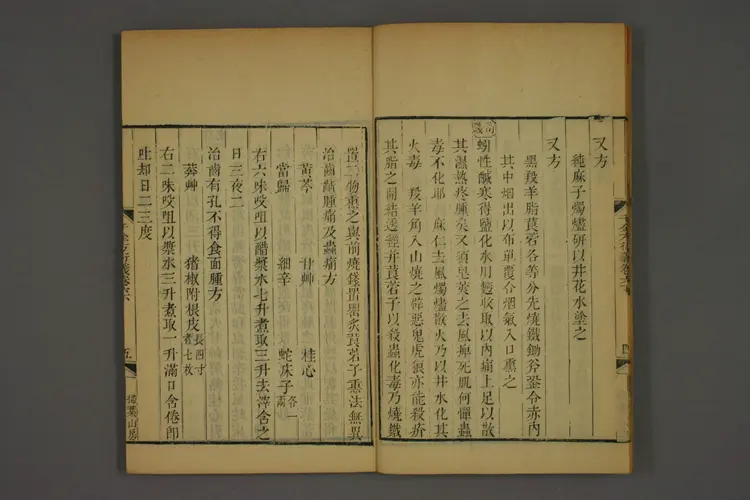 又方
純麻子燭燼研以井花水塗之
又方
黑羖羊脂莨菪各等分先燒鐵鋤斧銎令赤內
其中烟出以布單覆合烟氣入口熏之
衍義
蚓性鹹寒得鹽化水用
收取以內痛上足以散
其濕熱疼腫矣又須
去風痺死肌何憚蟲
毒不化耶 麻仁去風燭燼散火乃以井水化其
火毒 羖羊角入山燒之辟惡鬼虎狼亦能殺疥
其脂之開結透經并莨菪子以殺蟲化毒乃燒鐵
千金方衍義卷六
四
置二物熏之與前燒錢
炙莨菪子熏法無異
治齒齗腫痛及蟲痛方
黃芩 甘艸 桂心
當歸 細辛 蛇床子各一兩
右六味㕮咀以醋漿水七升煮取三升去滓含之
日三夜二
治齒有孔不得食面腫方
莽艸 猪椒附根皮長四寸者七枚
右二味㕮咀以漿水三升煮取一升滿口含倦即
吐却日二三度
千金方衍義卷六
五
掃葉山房